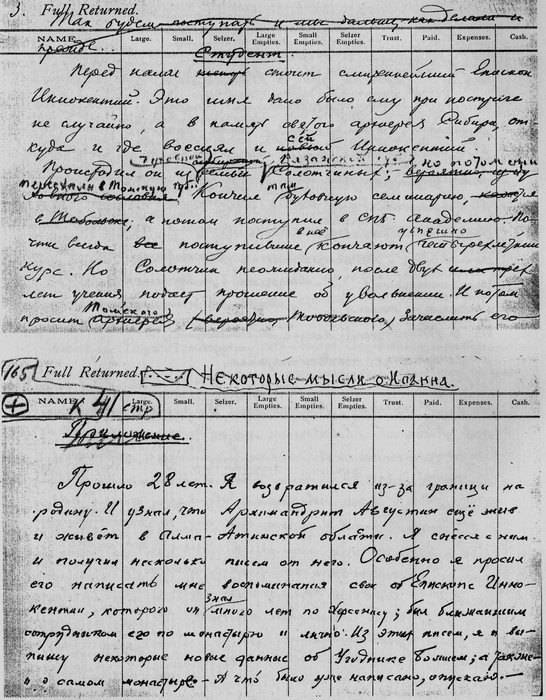 3. Full Returned.
Так будем поступать и мы дальше, как делали и
прежде.
NAME. Large. Small. Selzer. Large Empties. Small Empties. Trust. Paid. Expenses. Cash.
Студент.
Перед нами стоит смиреннейший Епископ
Иннокентий. Это имя дано было ему при постриге
не случайно, а в память святого архиерея Сибири, от-
куда и где воссиял и свт. Иннокентий.
Происходил он из семьи Солотчиных; Рязанской но потом они
переехали в Томскую губ. Кончил там духовную семинарию,
в Тобольске; а потом поступил в СПБ. Академию. По-
чти всегда все поступившие в неё кончают успешно четырехлетний
курс. Но Солотчин неожиданно, после двух или трёх
лет учения, подает прошение об увольнении. И потом
просит Томского архиерея, (вероятно, Тобольского) зачислить его
165 Full Returned. Некоторые мысли о. Иоанна.
NAME. Large. Small. Selzer. Large Empties. Small Empties. Trust. Paid. Expenses. Cash.
+ к 41 стр
Приложение.
Прошло 28 лет. Я возвратился из-за границы на
родину. И узнал, что Архимандрит Августин ещё жив
и живёт в Алма-Атинской области. Я снёсся с ним
и получил несколько писем от него. Особенно я просил
его написать мне воспоминания свои об Епископе Инно-
кентии, которого он знал много лет по Херсонесу; был ближайшим
сотрудником его по монастырю и лично. Из этих писем, я и вы-
пишу некоторые новые данные об Угоднике Божием; а также
и о самом монастыре. А что было уже написано, опускаю.